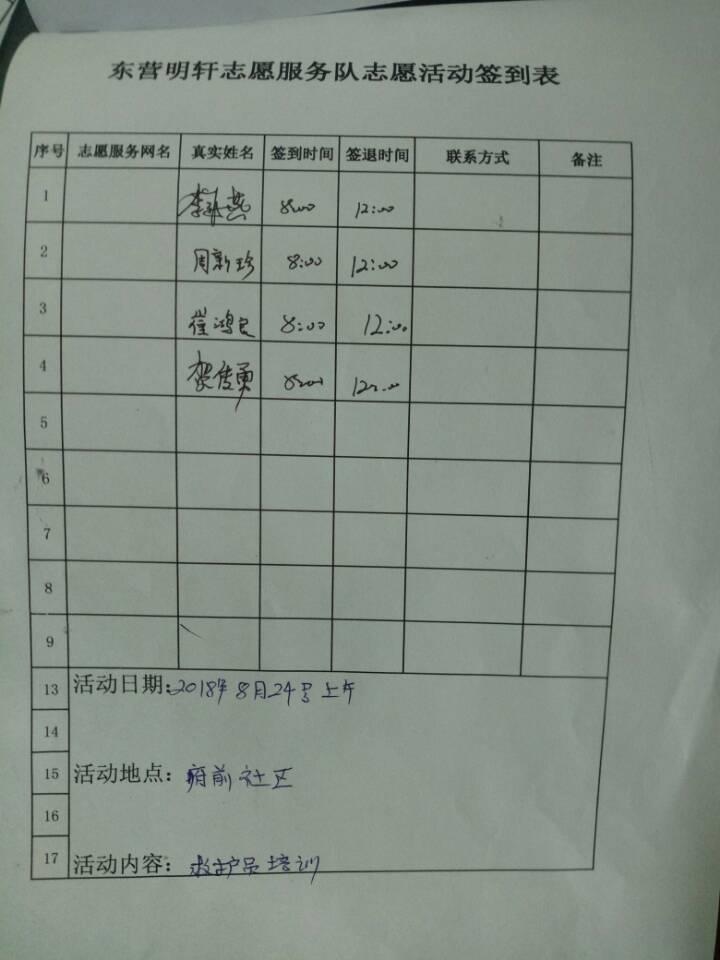 东营明轩志愿服务队志愿活动签到表
序号 志愿服务网名 真实姓名 签到时间 签退时间 联系方式 备注
1 8:00 12:00
2 周新珍 8:00 12:00
3 崔鸿民 8:00 12:00
4 8:00 12:00
5
6
7
8
9
13 活动日期:2018年8月24号上午
14
15 活动地点：府前社区
16
17 活动内容：救护员培训